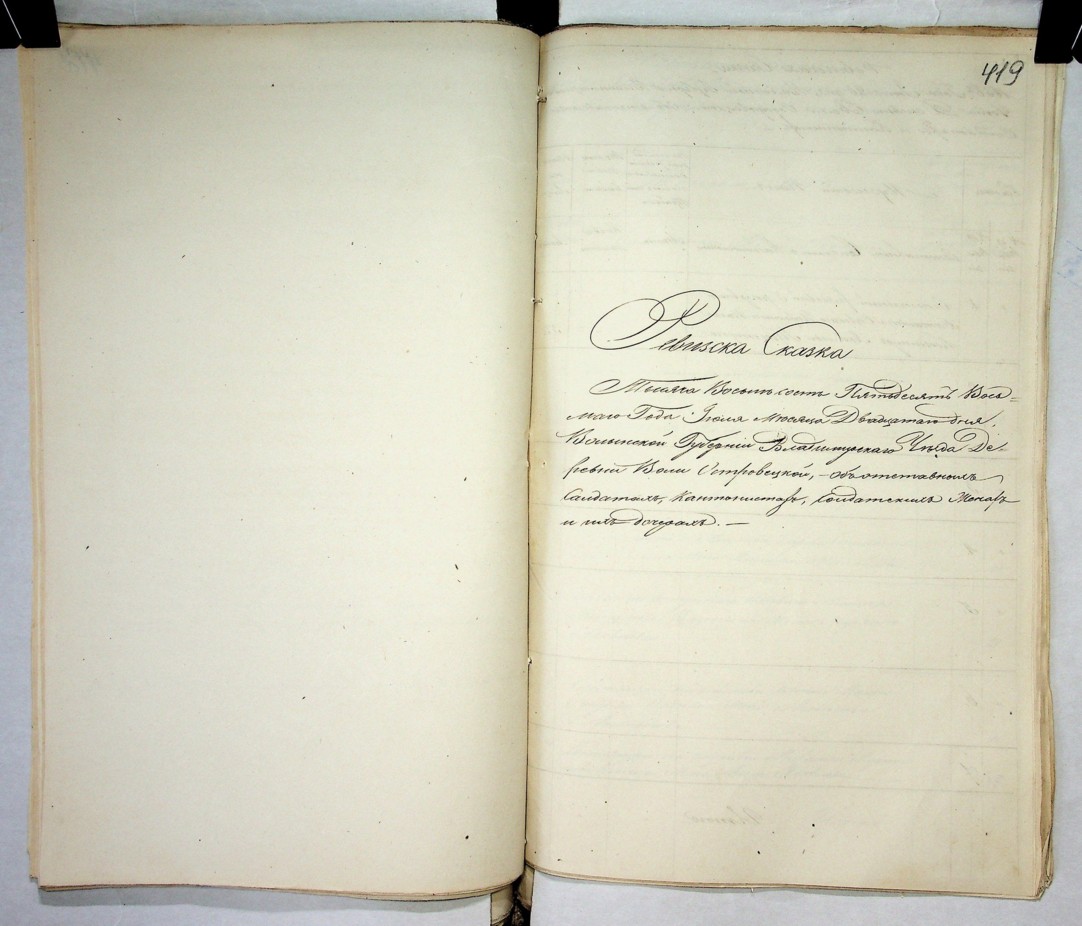 419
Ревизска Сказка
Тысяча Восемьсотъ Пятьдесятъ Вось=
маго Года Іюля Мѣсяца Двадцатаго дня,
Волынской Губерніи Владимирскаго Уѣзда Де-
ревни Воли Островецкой, – объ отставныхъ
Салдатахъ, Кантонистахъ, Солдатскихъ Женахъ
и ихъ дочеряхъ. —